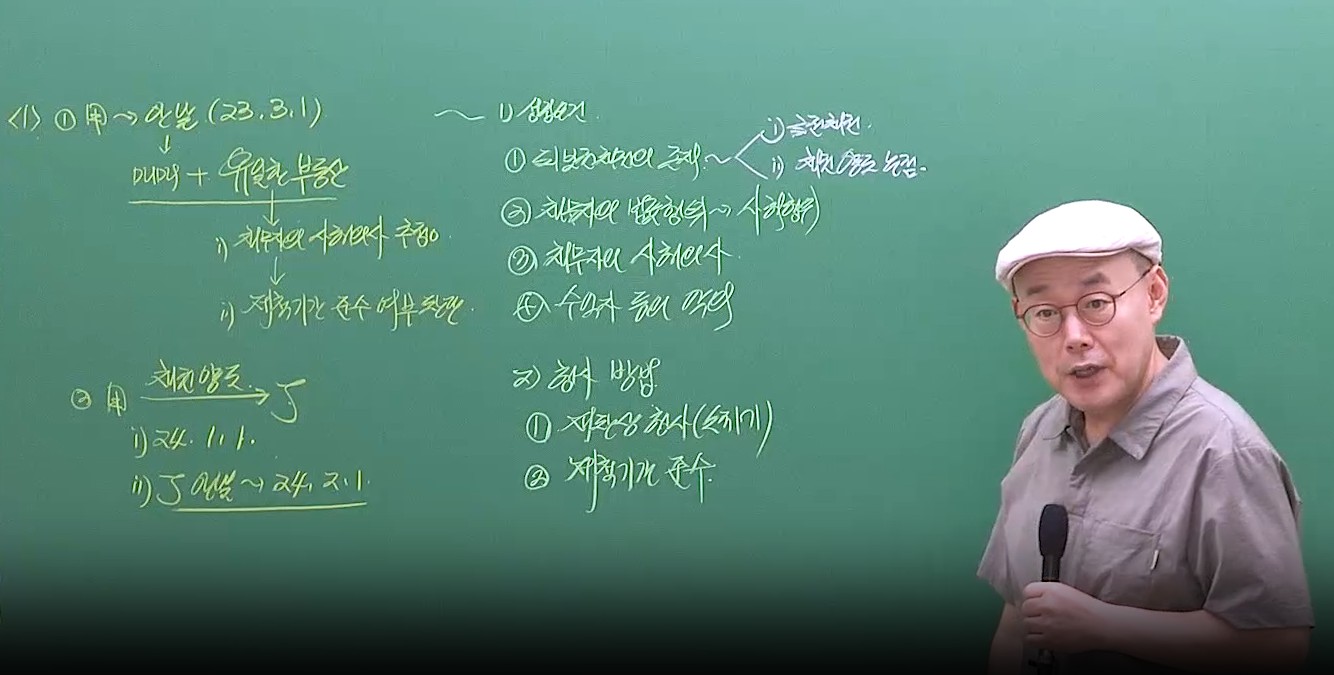 <1> ① 甲 ~> 안날 (23. 3. 1)
↓
매매 + 유일한 부동산
↓
i) 채무자의 사해의사 추정○
↓
ii) 제척기간 준수 여부 판단.
② 甲 채권양도 → J
i) 24. 1. 1.
ii) J 안날 ~> 24. 2. 1.
~ 1) 성립요건.
① 피보전채권의 존재 ~
i) 금전채권.
ii) 채권 양도 논점.
② 채무자의 법률행위 ~> 사해행위)
③ 채무자의 사해의사.
④ 수익자 등의 악의
2) 행사 방법.
① 재판상 행사 (소제기)
② 제척기간 준수.